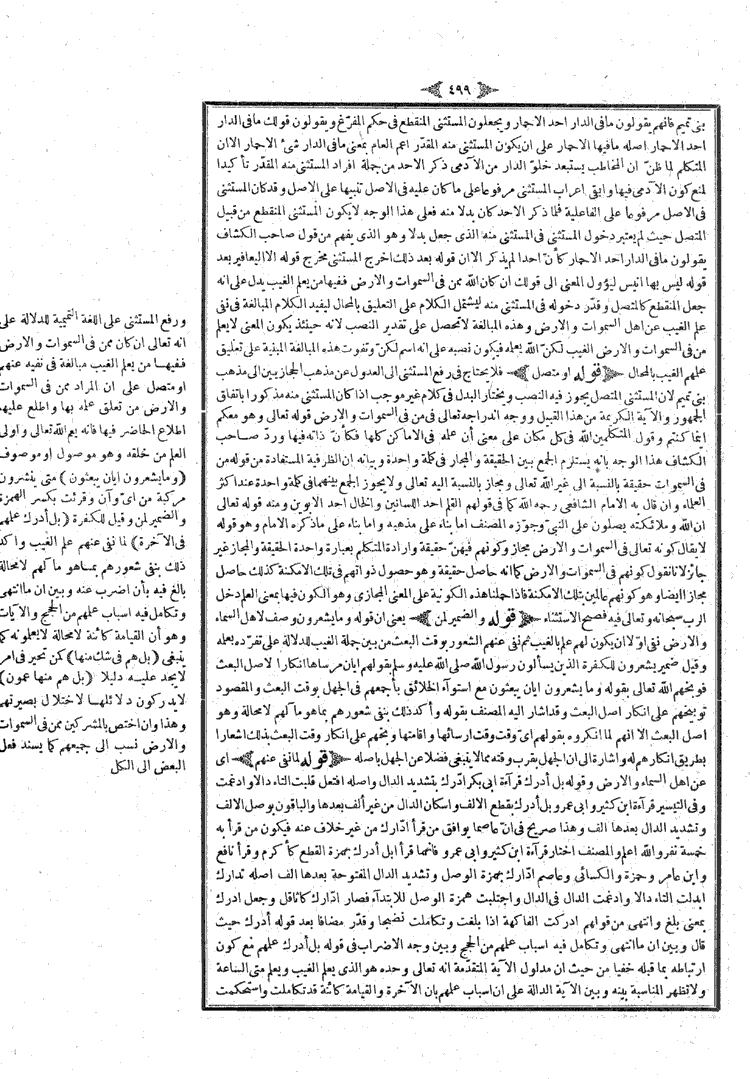 ٤٩٩
بنى تميم فانهم يقولون مافى الدار احد الاحمار ويجعلون المستثنى المنقطع فى حكم المفرغ ويقولون قولك مافى الدار
احد الاحمار اصله مافيها الاحمار على ان يكون المستثنى منه المقدّر اعم العام بمعنى مافى الدار شئ الاحمار الاان
المتكلم لما ظنّ ان المخاطب يستبعد خلوّ الدار من الآدمى ذكر الاحد من جملة افراد المستثنى منه المقدّر تأكيدا
لمنع كون الآدمى فيها وابقى اعراب المستثنى مرفوعا على ماكان عليه فى الاصل تنبيها على الاصل وقدكان المستثنى
فى الاصل مرفوعا على الفاعلية فلما ذكر الاحد كان بدلا منه فعلى هذا الوجه لايكون المستثنى المنقطع من قبيل
المتصل حيث لم يعتبر دخول المستثنى فى المستثنى منه الذى جعل بدلا وهو الذى يفهم من قول صاحب الكشاف
يقولون مافى الدار احد الاحمار كأنّ احدا لم يذكر الاان قوله بعد ذلك اخرج المستثنى مخرج قوله الااليعافير بعد
قوله ليس بها انيس ليؤول المعنى الى قولك ان كان الله ممن فى السموات والارض ففيها من يعلم الغيب يدل على انه
جعل المنقطع كالمتصل وقدّر دخوله فى المستثنى منه ليشتمل الكلام على التعليق بالمحال ليفيد الكلام المبالغة فى نفى
علم الغيب عن اهل السموات والارض وهذه المبالغة لاتحصل على تقدير النصب لانه حينئذ يكون المعنى لايعلم
من فى السموات والارض الغيب لكنّ الله يعلمه فيكون نصبه على انه اسم لكنّ وتفوت هذه المبالغة المبنية على تعليق
علمهم الغيب بالمحال ﴿ قوله او متصل ﴾ فلايحتاج فى رفع المستثنى الى العدول عن مذهب الحجازيين الى مذهب
بنى تميم لان المستثنى المتصل يجوز فيه النصب ويختار البدل فى كلام غير موجب اذا كان المستثنى منه مذكورا باتفاق
الجمهور والآية الكريمة من هذا القبيل ووجه اندراجه تعالى فى من فى السموات والارض قوله تعالى وهو معكم
اينما كنتم وقول المتكلمين الله فى كل مكان على معنى أن علمه فى الاماكن كلها فكأنّ ذاته فيها وردّ صاحب
الكشاف هذا الوجه بانه يستلزم الجمع بين الحقيقة والمجاز فى كلمة واحدة وبيانه ان الظرفية المستفادة من قوله من
فى السموات حقيقة بالنسبة الى غير الله تعالى ومجاز بالنسبة اليه تعالى ولايجوز الجمع بينهما فى كلمة واحدة عند اكثر
العلماء وان قال به الامام الشافعى رحمه الله كما فى قولهم القلم احد اللسانين والخال احد الابوين ومنه قوله تعالى
ان الله وملائكته يصلون على النبىّ وجوزه المصنف اما بناء على مذهبه واما بناء على ماذكره الامام وهو قوله
لايقال كونه تعالى فى السموات والارض مجاز وكونهم فيهنّ حقيقة وارادة المتكلم بعبارة واحدة الحقيقة والمجاز غير
جائز لانا نقول كونهم فى السموات والارض كما انه حاصل حقيقة وهو حصول ذواتهم فى تلك الامكنة كذلك حاصل
مجازا ايضا وهو كونهم عالمين بتلك الامكنة فاذا حملنا هذه الكونية على المعنى المجازى وهو الكون فيها بمعنى العلم دخل
الرب سبحانه وتعالى فيه فصح الاستثناء ﴿ قوله والضمير لمن ﴾ يعنى ان قوله ومايشعرون وصف لاهل السماء
والارض نفى اولا ان يكون لهم علم بالغيب ثم نفى عنهم الشعور بوقت البعث من بين جملة الغيب للدلالة على تفرّده بعلمه
وقيل ضمير يشعرون للكفرة الذين يسألون رسول الله صلى الله عليه وسلم بقولهم ايان مرساها انكارا لاصل البعث
فوبخهم الله تعالى بقوله ومايشعرون ايان يبعثون مع استوآء الخلائق بأجمعهم فى الجهل بوقت البعث والمقصود
توبيخهم على انكار اصل البعث وقداشار اليه المصنف بقوله وأكد ذلك بنفى شعورهم بماهو مآلهم لامحالة وهو
اصل البعث الا انهم لما انكروه بقولهم اىّ وقت وقت ارسائها واقامتها وبخهم على انكار وقت البعث بذلك اشعارا
بطريق انكارهم له واشارة الى ان الجهل بقرب وقته ممالاينبغى فضلا عن الجهل باصله ﴿ قوله لمانفى عنهم ﴾ اى
عن اهل السماء والارض وقوله بل أدرك قرآءة ابى بكر ادّرك بتشديد الدال واصله افتعل قلبت التاء دالا وادغمت
وفى التيسير قرآءة ابن كثير وابى عمرو بل أدرك بقطع الالف واسكان الدال من غير ألف بعدها والباقون بوصل الالف
وتشديد الدال بعدها الف وهذا صريح فى انّ عاصما يوافق من قرأ ادّارك من غير خلاف عنه فيكون من قرأ به
خمسة نفر والله اعلم والمصنف اختار قرآءة ابن كثير وابى عمرو فانهما قرأ ابل أدرك بهمزة القطع كأكرم وقرأ نافع
وابن عامر وحمزة والكسائى وعاصم ادّارك بهمزة الوصل وتشديد الدال المفتوحة بعدها الف اصله تدارك
ابدلت التاء دالا وادغمت الدال فى الدال واجتلبت همزة الوصل للابتدآء فصار ادّارك كاثاقل وجعل ادرك
بمعنى بلغ وانتهى من قولهم ادركت الفاكهة اذا بلغت وتكاملت نضجا وقدّر مضافا بعد قوله أدرك حيث
قال وبين ان ماانتهى وتكامل فيه اسباب علمهم من الحجج وبين وجه الاضراب فى قوله بل أدرك علمهم مع كون
ارتباطه بما قبله خفيا من حيث ان مدلول الآية المتقدّمة انه تعالى وحده هو الذى يعلم الغيب ويعلم متى الساعة
ولاتظهر المناسبة بينه وبين الآية الدالة على ان اسباب علمهم بان الآخرة والقيامة كائنة قدتكاملت واستحكمت
ورفع المستثنى على اللغة التميمية للدلالة على
انه تعالى ان كان ممن فى السموات والارض
ففيها من يعلم الغيب مبالغة فى نفيه عنهم
او متصل على ان المراد ممن فى السموات
والارض من تعلق علمه بها واطلع عليها
اطلاع الحاضر فيها فانه يعم الله تعالى واولى
العلم من خلقه وهو موصول او موصوف
(ومايشعرون ايان يبعثون) متى ينشرون
مركبة من اىّ وآن وقرئت بكسر الهمزة
والضمير لمن وقيل للكفرة (بل أدرك علمهم
فى الآخرة) لما نفى عنهم علم الغيب واكد
ذلك بنفى شعورهم بماهو مآلهم لامحالة
بالغ فيه بأن اضرب عنه وبين ان ماانتهى
وتكامل فيه اسباب علمهم من الحجج والآيات
وهو أن القيامة كائنة لامحالة لايعلمونه كما
ينبغى (بل هم فى شك منها) كمن تحير فى امر
لايجد عليه دليلا (بل هم منها عمون)
لايدركون دلائلها لاختلال بصيرتهم
وهذا وان اختص بالمشركين ممن فى السموات
والارض نسب الى جميعهم كما يسند فعل
البعض الى الكل